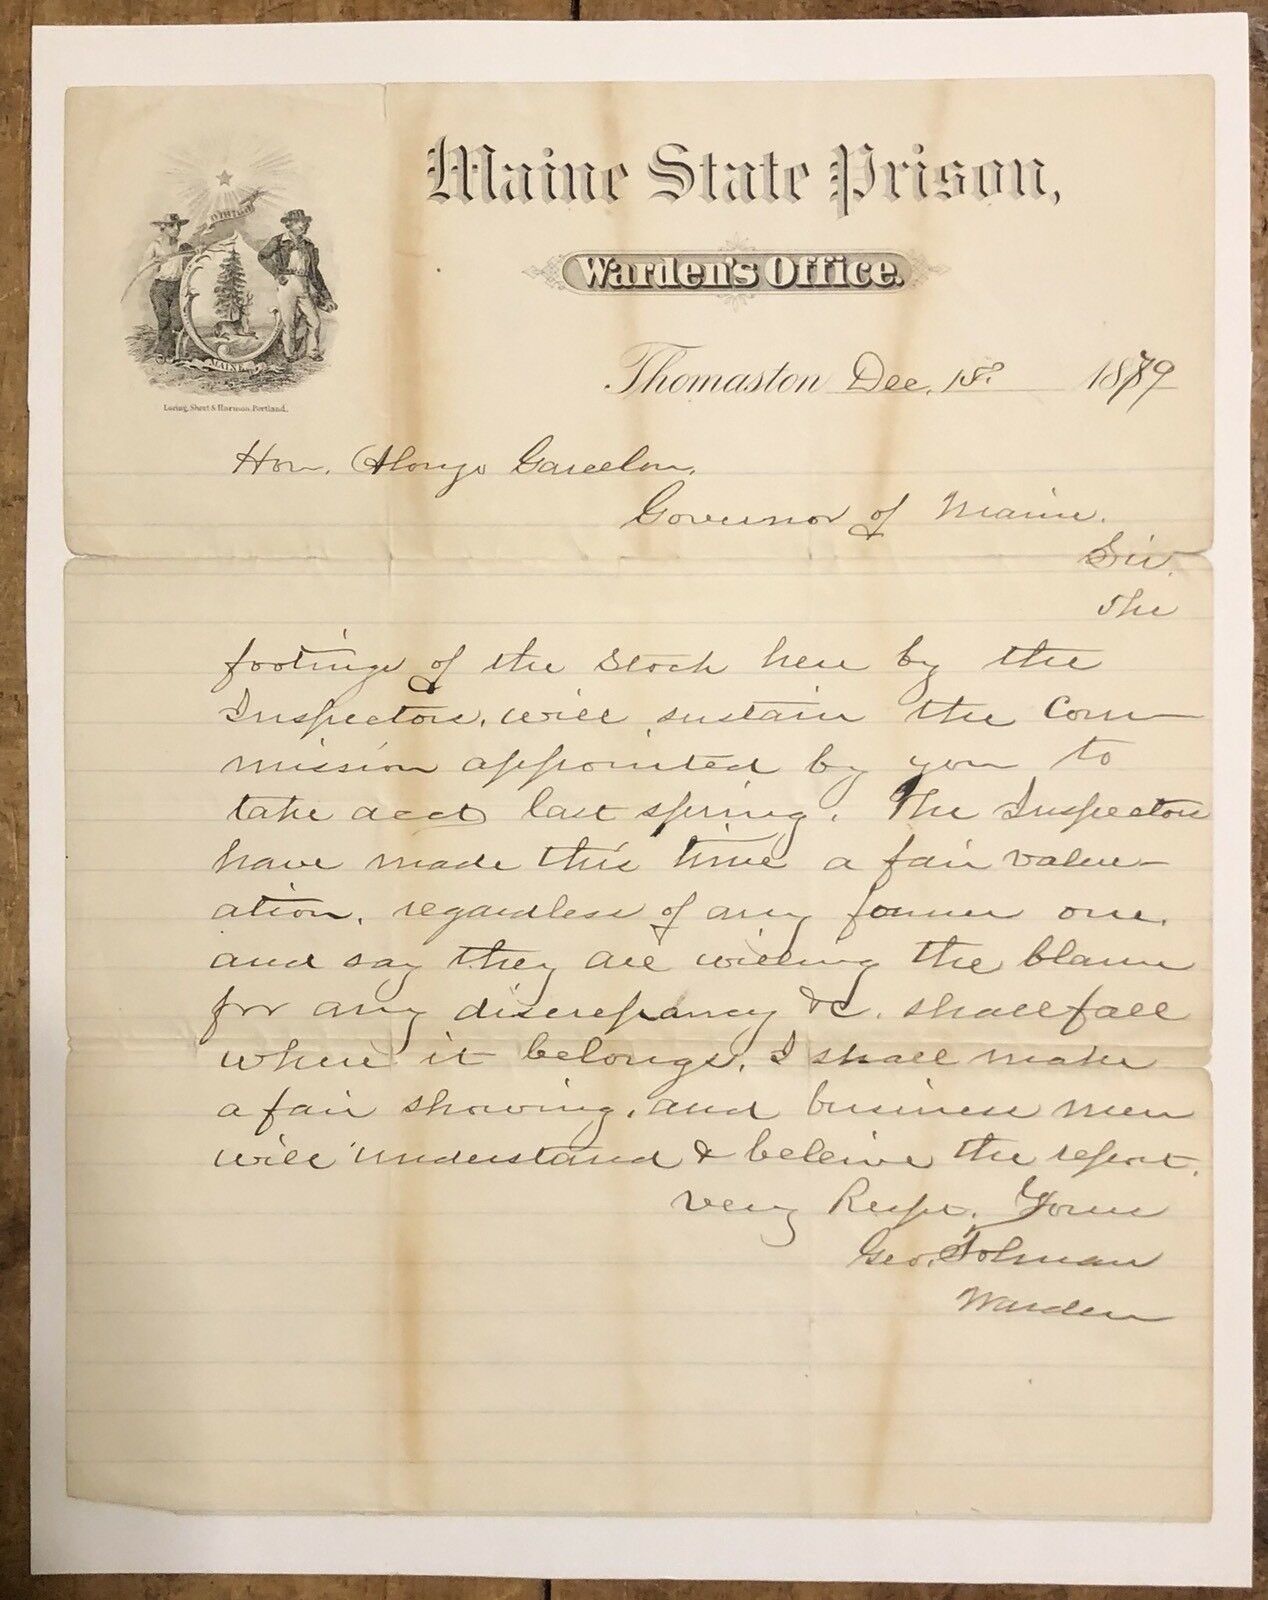 DIRIGO
MAINE
Loring, Short & Harmon, Portland.
Maine State Prison,
Warden's Office.
Thomaston Dec. 18. 1879
Hon. Alonzo Garcelon,
Governor of Maine.
Sir.
The
footings of the stock here by the
Inspectors, will sustain the Com-
mission appointed by you to
take acct last spring. The Inspectors
have made this time a fair valu-
ation, regardless of any former one,
and say they are willing the blame
for any discrepancy &c. shall fall
where it belongs, I shall make
a fair showing, and business men
will understand & beleive the report.
Very Respt. Yours
Geo. Tolman
Warden